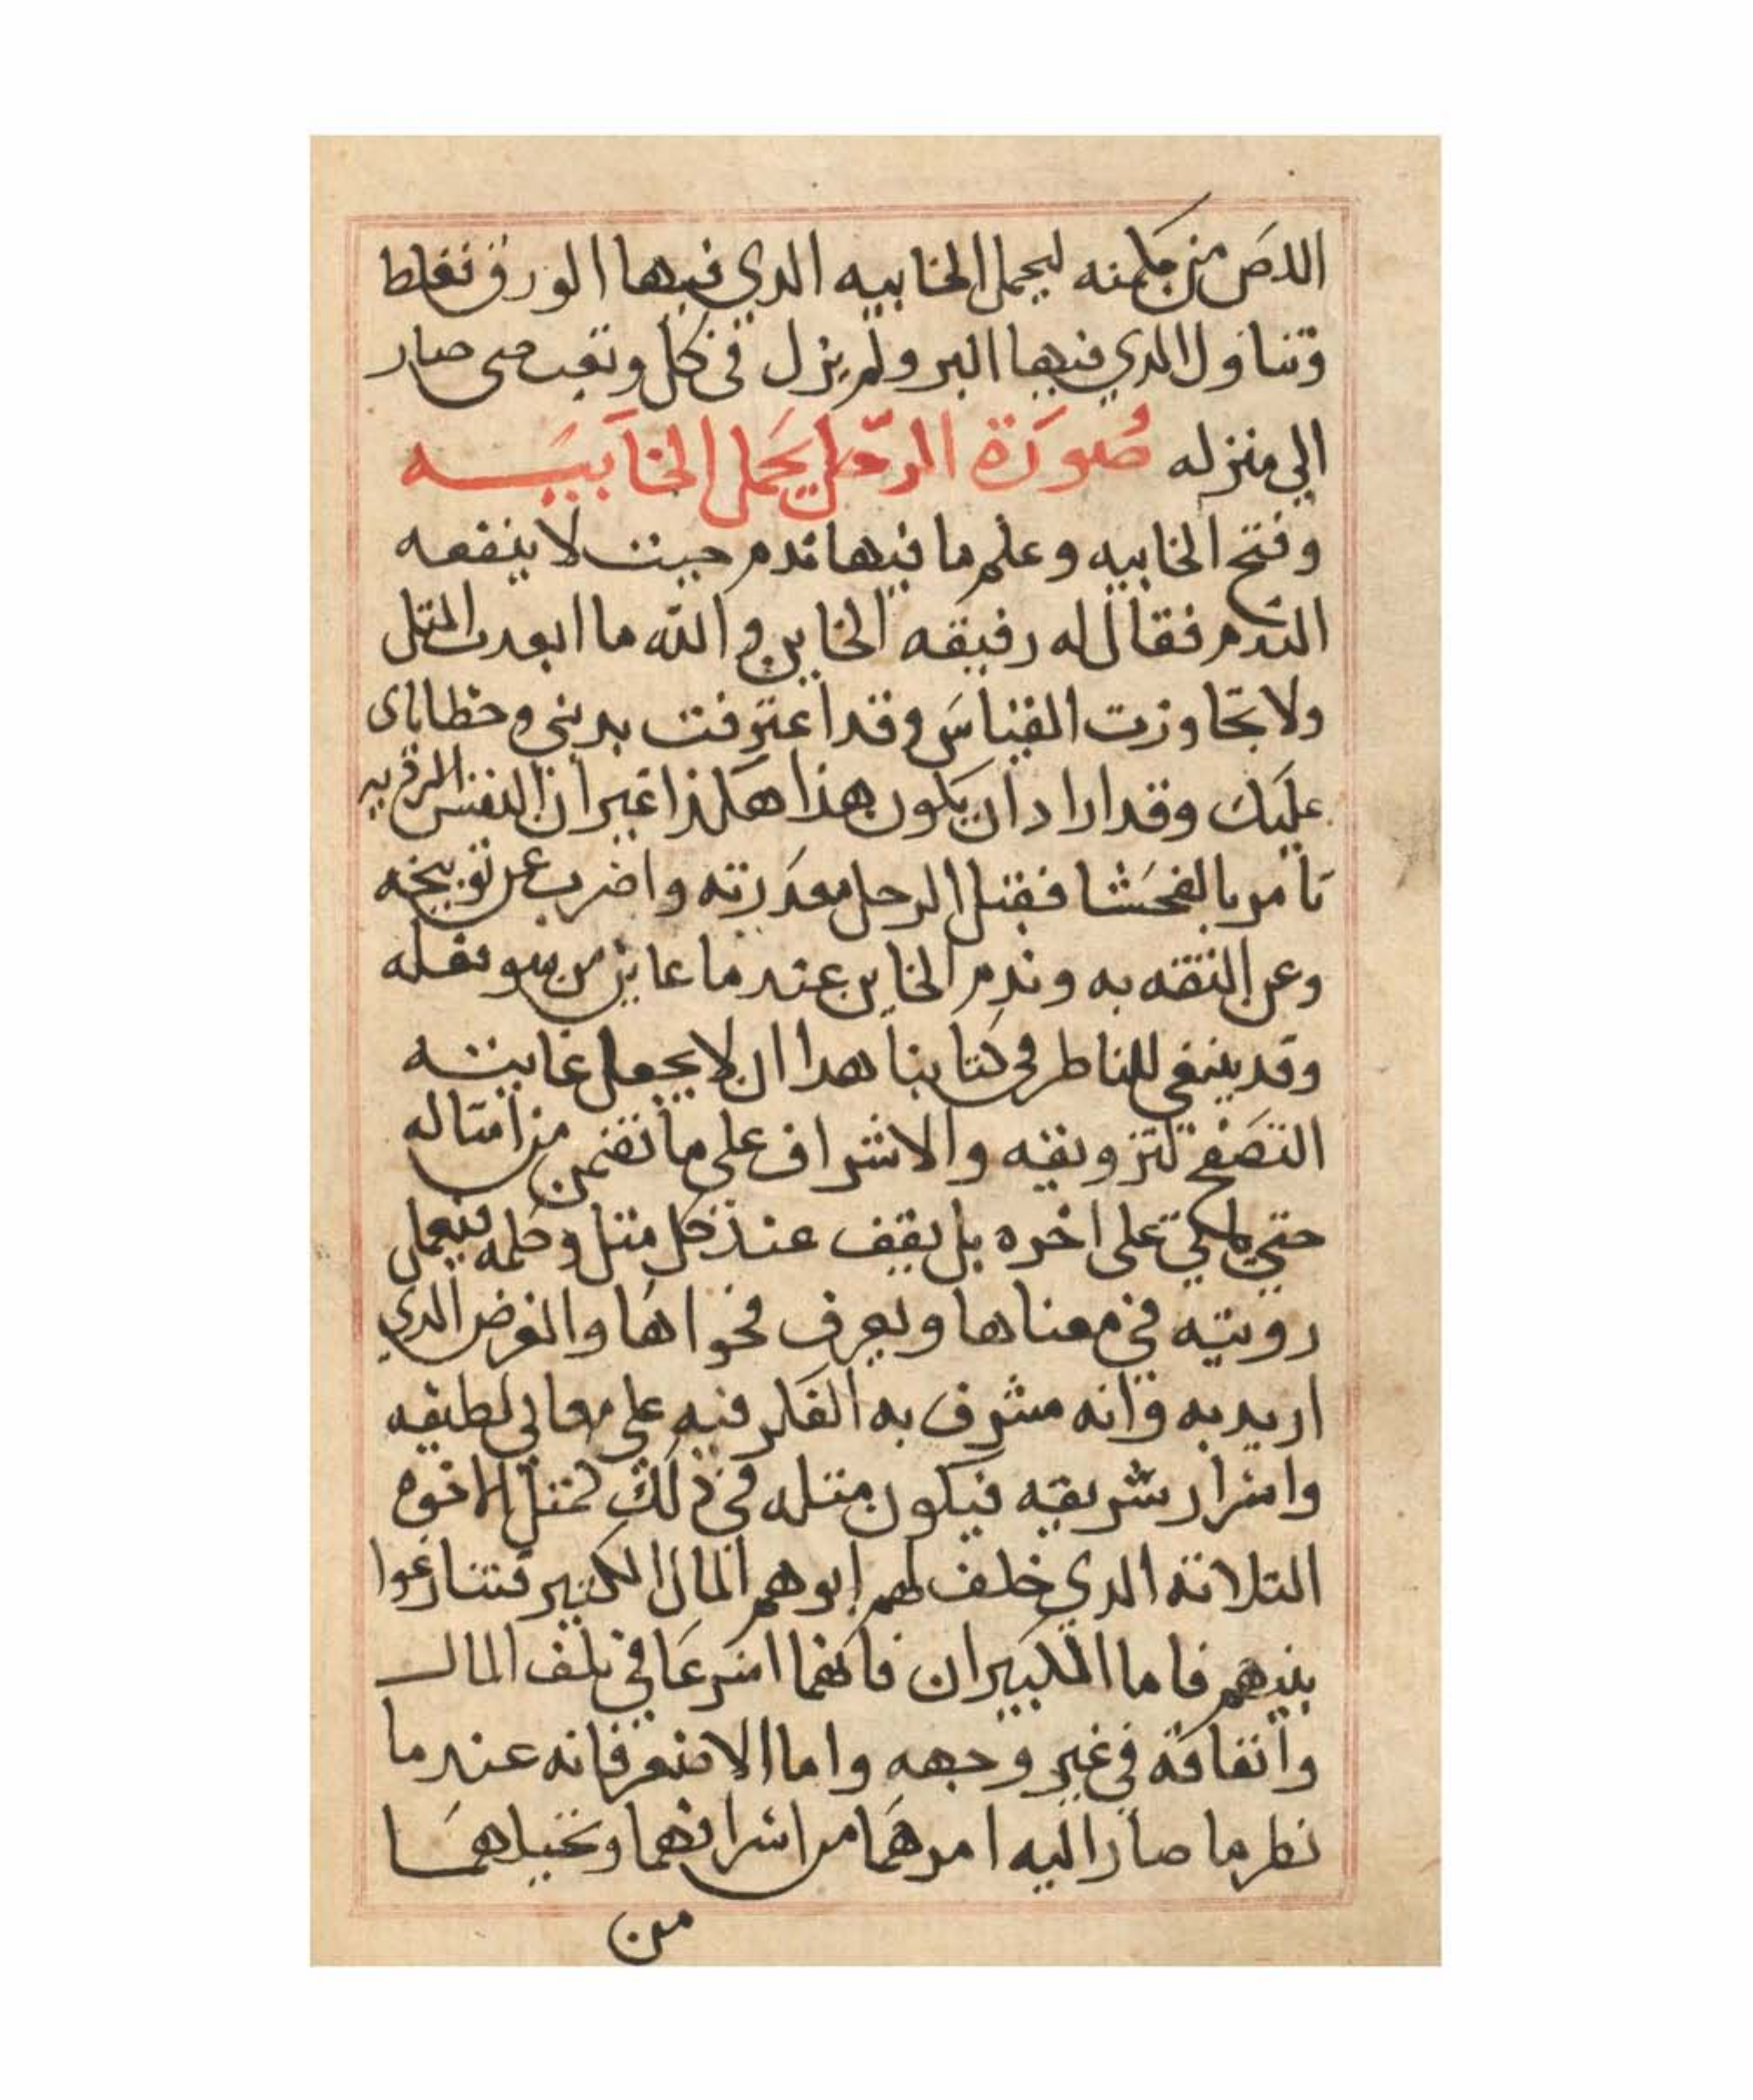 اللص من مكمنه ليحمل الخابيه الذي فيها الورق فغلط
وتناول الذي فيها البر ولم يزل في كل وتعب حتى صار
الي منزله صُورَة الرجل يحَمل الخاَبيَــه
وفتح الخابيه وعلم ما فيها ندم حيث لا ينفعه
الندم فقال له رفيقه الخاين والله ما ابعدت المثل
ولا تجاوزت القياسَ وقد اعترفت بديني وخطاياى
عليَك وقد اراد ان يكون هذا هكذا غير ان النفس الرديه
تامر بالفحَشا فقبل الرجل معدَرته واضرب عن توبيخه
وعن الثقه به وندم الخاين عند ما عاين من سو فعله
وقد ينبغي للناظر في كتابنا هدا ان لا يجعل غايتـه
التصَفح لتزويقه والاشراف على ما تضمن من امثاله
حتي ياتي على اخره بل يقف عند كل مثل وكلمه فيعمل
رويته في معناها ويعرف فحواهَا والغرض الدي
اريد به وانه مشرف به الفكر فيه على معاني لطيفه
واسرار شريفه فيكون مثله في ذلك كمثل الاخوه
الثلاثه الدي خلف لهم ابوهم المال الكثير فتنازعوا
بينهم فاما الكبيران فانهما اسرعَا في تلف المال
وانفاقه في غير وجهه واما الاصغر فانه عند ما
نظر ما صار اليه امرهمَا من اسرافهما وتخيلهمَـا
من